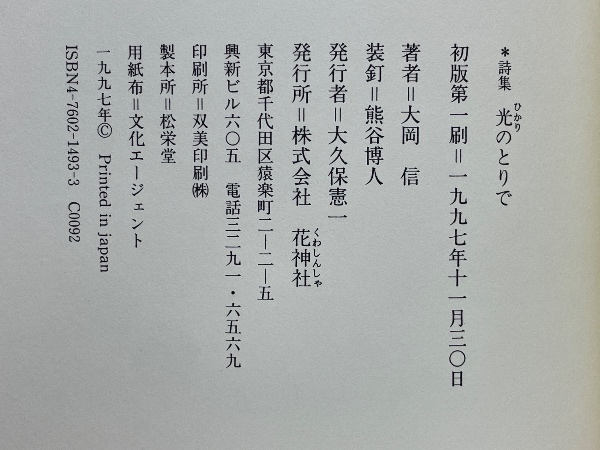 ＊詩集　光のとりで
ひかり
初版第一刷＝一九九七年十一月三〇日
著者＝大岡　信
装釘＝熊谷博人
発行者＝大久保憲一
発行所＝株式会社　花神社
くわしんしゃ
東京都千代田区猿楽町二―二―五
興新ビル六〇五　電話三二九一・六五六九
印刷所＝双美印刷㈱
製本所＝松栄堂
用紙布＝文化エージェント
一九九七年©　Printed in japan
ISBN4-7602-1493-3　C0092